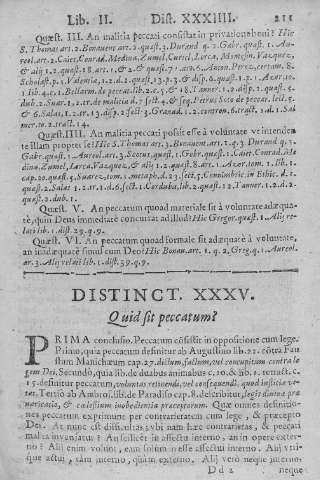 Lib. II. Dist. XXXIIII. 211
Quæst. III. An malicia peccati consistat in privatione boni? Hic
S. Thomas art. 2. Bonauent. art. 2. quæst. 3. Durand q. 2. Gabr. quæst. 1. Au-
reol. art. 2. Caiet. Conrad. Medina, Zumel, Curiel, Lorca, Montesin. Vazquez,
& alij 1. 2. quæst. 18. art. 1. & 2. & quæst. 71. art. 6. Anton. Perez, certam. 8.
Scholast. & ca. 1. Valentia, 1. 2. d. 2. quæst. 13. p. 3. & disp. 6. quæst. 1. p. 1. Azor. 10.
1. lib. 4. c. 1. Bellarm. de peccat. lib. 2. c. 5. & 18. Tanner. 1. 2. disp. 4. quæst. 5.
dub. 2. Suar. 1. 2. tr. de malicia d. 7. sect. 4. & seq. Petrus Soto de peccat. lect. 5.
& 6. Salas, 1. 2. ar. 13. disp. 2. sect. 3. Granad. 1. 2. contron. 6. tract. 1. d. 1. Sal
mer. to. 2. tract. 14.
Quæst. IIII. An malicia peccati possit esse à voluntate vt intenden
te illam propter se? Hic S. Thomas art. 3. Bonauent. art. 1. q. 3. Durand q. 3.
Gabr. quæst. 1. Aureol. art. 3. Scotus, quæst. 1. Gabr. quæst. 1. Caiet. Conrad. Me
dina, Zumel, Lorca, Vazquez, & alij 1. 2. quæst. 8. art. 1. Azor. tom. 1. lib. 1.
cap. 20. quæst. 9. Suarez, tom. 1. metaph. d. 23. sect. 5. Conimbric. in Ethic. d. 2.
quæst. 2. Salas 1. 2. ar. 1. d. 6. sect. 1. Corduba, lib. 2. quæst. 12. Tanner. 1. 2. d. 2.
quæst. 2. dub. 1.
Quæst. V. An peccatum quoad materiale sit à voluntate adæqua-
tè, quin Deus immediatè concurrat ad illud? Hic Gregor. quæst. 1. Alij re-
lati lib. 1. dist. 29. q. 9.
Quæst. VI. An peccatum quoad formale sit adæquatè à voluntate,
an inadæquatè simul cum Deo? Hic Bonau. art. 1. q. 2. Greg. q. 1. Aureol.
ar. 3. Alij relati lib. 1. dist. 39. q. 9.
DISTINCT. XXXV.
Quid sit peccatum?
PRIMA conclusio. Peccatum cõsistit in oppositione cum lege.
Primo, quia peccatum definitur ab Augustino lib. 22. cõtra Fau
stum Manichæum cap. 27. dictum, factum, vel concupitum contra le
gem Dei. Secundò, quia lib. de duabus animabus c. 10. & lib. 1. retract. c.
15. definitur peccatum, voluntas retinendi, vel consequendi, quod iusticia ve-
tat. Tertiò ab Ambros. lib. de Paradiso cap. 8. describitur, legis diuinæ præ
uaricatio, & cælestium inobedientia præceptorum. Quæ omnes definitio-
nes peccatum exprimunt per contrarietatem cum lege, & præcepto
Dei. At nunc est difficultas, vbi nam hæc contrarietas, & peccati
malitia inueniatur? An scilicet in affectu interno, an in opere exter-
no? Alij enim volunt, eam solum in esse affectui interno. Alij vtri-
que actui, tam interno, quàm externo. Alij verò neque interno,
D d 2 neque